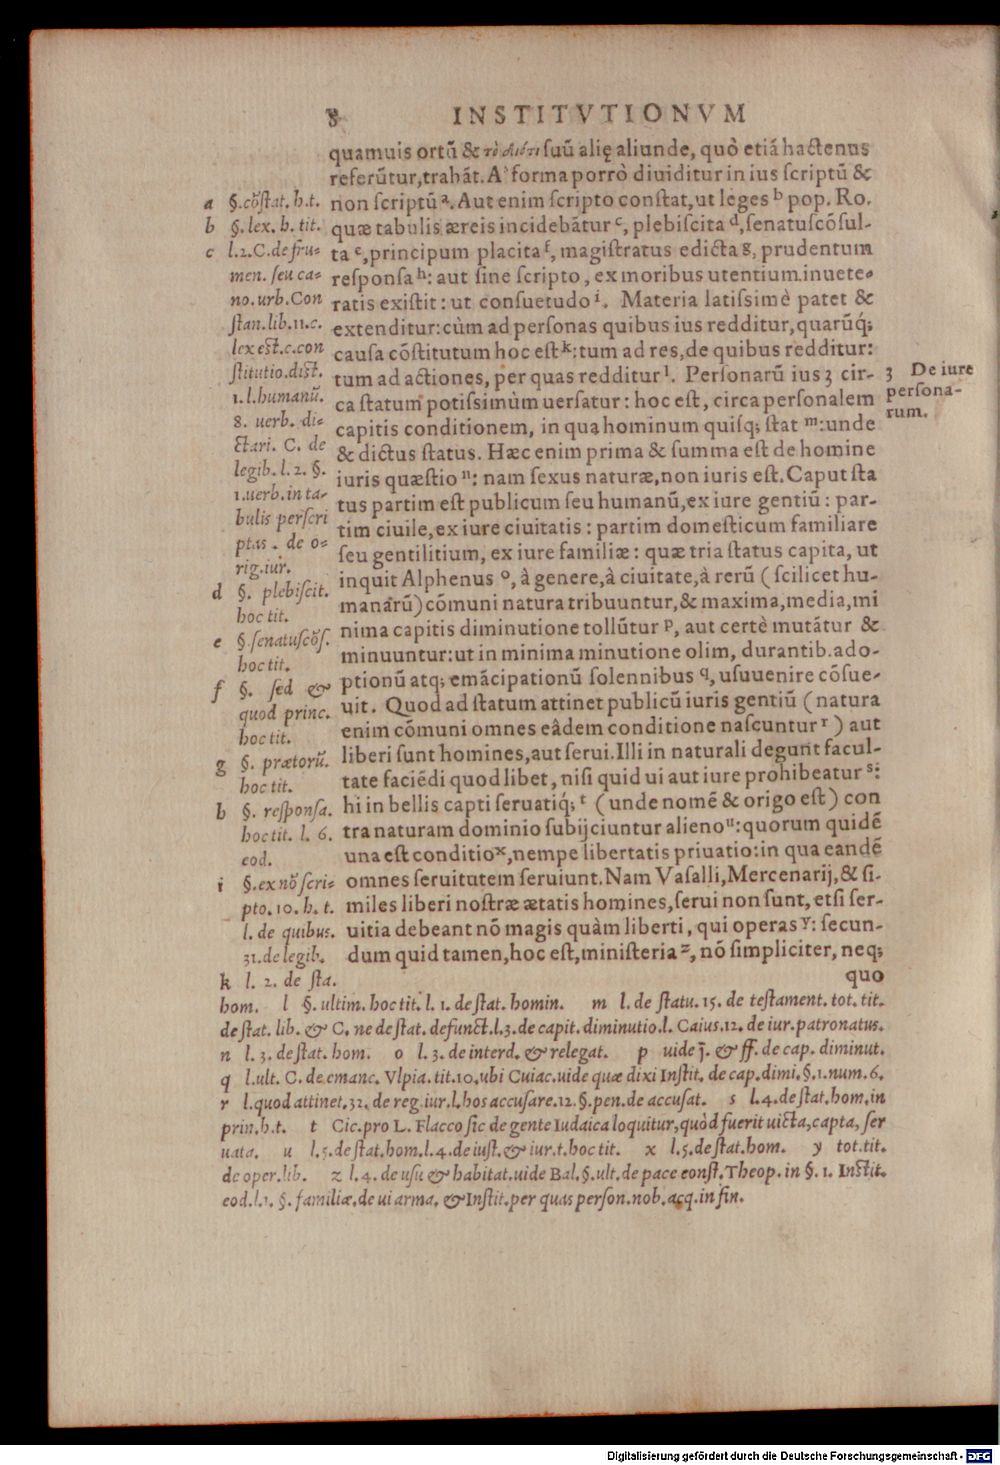 8 INSTITVTIONVM
quamuis ortũ & τὸ διότι ſuũ alię aliunde, quò etiã hactenus
referũtur, trahãt. A' forma porrò diuiditur in ius ſcriptũ &
non ſcriptũ ᵃ. Aut enim ſcripto conſtat, ut leges ᵇ pop. Ro.
quæ tabulis æreis incidebãtur ᶜ, plebiſcita ᵈ, ſenatuſcõſul-
ta ᵉ, principum placita ᶠ, magiſtratus edicta g, prudentum
reſponſa ʰ: aut ſine ſcripto, ex moribus utentium inuete-
ratis exiſtit: ut conſuetudo ⁱ. Materia latiſsimè patet &
extenditur: cùm ad perſonas quibus ius redditur, quarũq́;
cauſa cõſtitutum hoc eſt ᵏ: tum ad res, de quibus redditur:
tum ad actiones, per quas redditur ˡ. Perſonarũ ius 3 cir-
ca ſtatum potiſsimùm uerſatur: hoc eſt, circa perſonalem
capitis conditionem, in qua hominum quiſq; ſtat ᵐ: unde
& dictus ſtatus. Hæc enim prima & ſumma eſt de homine
iuris quæſtio ⁿ: nam ſexus naturæ, non iuris eſt. Caput ſta
tus partim eſt publicum ſeu humanũ, ex iure gentiũ: par-
tim ciuile, ex iure ciuitatis: partim domeſticum familiare
ſeu gentilitium, ex iure familiæ: quæ tria ſtatus capita, ut
inquit Alphenus ᵒ, à genere, à ciuitate, à rerũ (ſcilicet hu-
manarũ) cõmuni natura tribuuntur, & maxima, media, mi
nima capitis diminutione tollũtur ᵖ, aut certè mutãtur &
minuuntur: ut in minima minutione olim, durantib. ado-
ptionũ atq; emãcipationũ ſolennibus q, uſuuenire cõſue-
uit. Quod ad ſtatum attinet publicũ iuris gentiũ (natura
enim cõmuni omnes eâdem conditione naſcuntur ʳ) aut
liberi ſunt homines, aut ſerui. Illi in naturali degunt facul-
tate faciẽdi quod libet, niſi quid ui aut iure prohibeatur ˢ:
hi in bellis capti ſeruatiq́; ᵗ (unde nomẽ & origo eſt) con
tra naturam dominio ſubijciuntur alieno ᵘ: quorum quidẽ
una eſt conditio ˣ, nempe libertatis priuatio: in qua eandẽ
omnes ſeruitutem ſeruiunt. Nam Vaſalli, Mercenarij, & ſi-
miles liberi noſtræ ætatis homines, ſerui non ſunt, etſi ſer-
uitia debeant nõ magis quàm liberti, qui operas ʸ: ſecun-
dum quid tamen, hoc eſt, miniſteria ᶻ, nõ ſimpliciter, neq;
quo
3 De iure
perſona-
rum.
a §. cõſtat. h. t.
b §. lex. h. tit.
c l. 2. C. de fru-
men. ſeu ca-
no. urb. Con
ſtan. lib. 11. c.
lex eſt. c. con
ſtitutio. diſt.
1. l. humanũ.
8. uerb. di-
ctari. C. de
legib. l. 2. §.
1. uerb. in ta-
bulis perſcri
ptas. de o-
rig. iur.
d §. plebiſcit.
hoc tit.
e §. ſenatuſcõſ.
hoc tit.
f §. ſed &
quod princ.
hoc tit.
g §. prætorũ.
hoc tit.
h §. reſponſa.
hoc tit. l. 6.
eod.
i §. ex nõ ſcri-
pto. 10. h. t.
l. de quibus.
31. de legib.
k l. 2. de ſta.
hom. l §. ultim. hoc tit. l. 1. de ſtat. homin. m l. de ſtatu. 15. de teſtament. tot. tit.
de ſtat. lib. & C. ne de ſtat. defunct. l. 3. de capit. diminutio. l. Caius. 12. de iur. patronatus.
n l. 3. de ſtat. hom. o l. 3. de interd. & relegat. p uide j. & ff. de cap. diminut.
q l. ult. C. de emanc. Vlpia. tit. 10. ubi Cuiac. uide quæ dixi Inſtit. de cap. dimi. §. 1. num. 6.
r l. quod attinet. 32. de reg. iur. l. hos accuſare. 12. §. pen. de accuſat. s l. 4. de ſtat. hom. in
prin. h. t. t Cic. pro L. Flacco ſic de gente Iudaica loquitur, quòd fuerit uicta, capta, ſer
uata. u l. 5. de ſtat. hom. l. 4. de iuſt. & iur. t. hoc tit. x l. 5. de ſtat. hom. y tot. tit.
de oper. lib. z l. 4. de uſu & habitat. uide Bal. §. ult. de pace conſt. Theop. in §. 1. Inſtit.
eod. l. 1. §. familiæ. de ui arma. & Inſtit. per quas perſon. nob. acq. in fin.
Digitalisierung gefördert durch die Deutsche Forschungsgemeinschaft - DFG